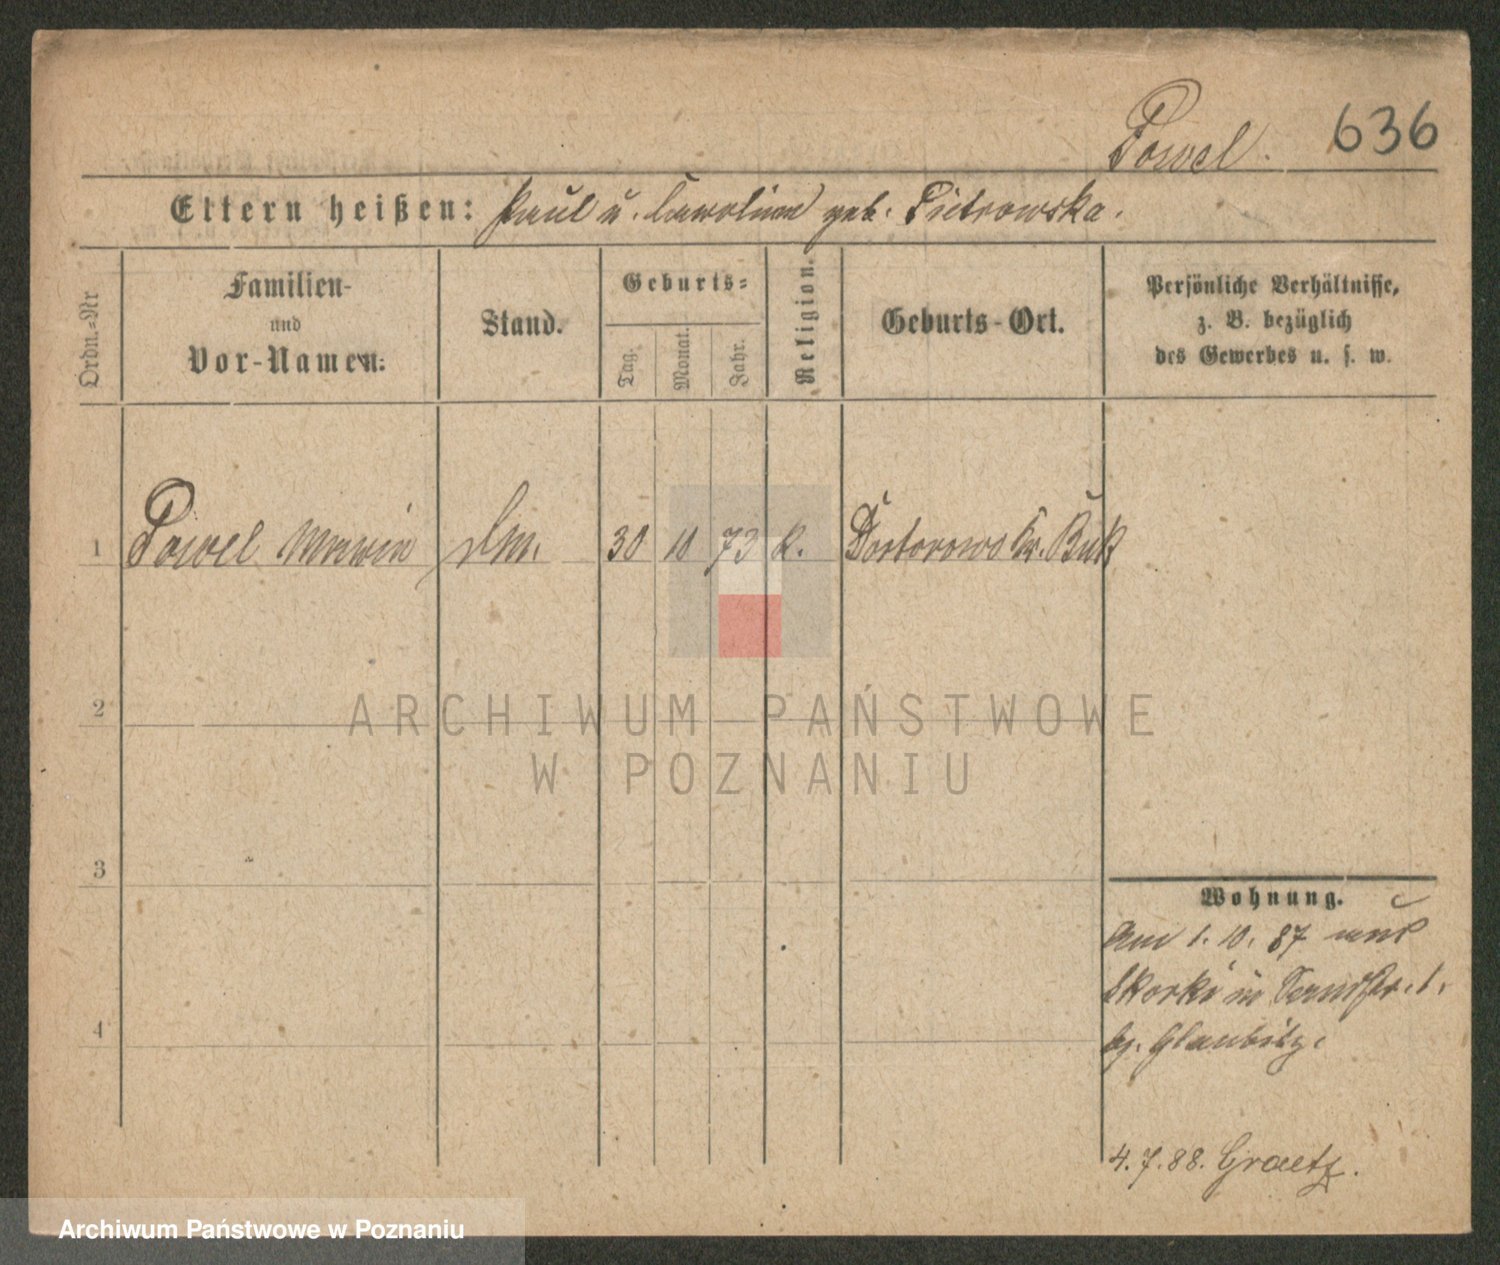 Powel.
636
Eltern heißen: Paul u. Caroline geb. Pietrowska.
Ordn.-Nr
Familien-
und
Vor-Namen:
Stand.
Geburts-
Tag.
Monat.
Jahr.
Religion.
Geburts-Ort.
Persönliche Verhältnisse,
z. B. bezüglich
des Gewerbes u. s. w.
1 Powel 30 10 73 k. Kr. Buk
2
3
4
Wohnung.
Am 1. 10. 87
Skorki in 1.
bz. Glaubitz.
4.7.88. Graetz.
ARCHIWUM PAŃSTWOWE
W POZNANIU
Archiwum Państwowe w Poznaniu